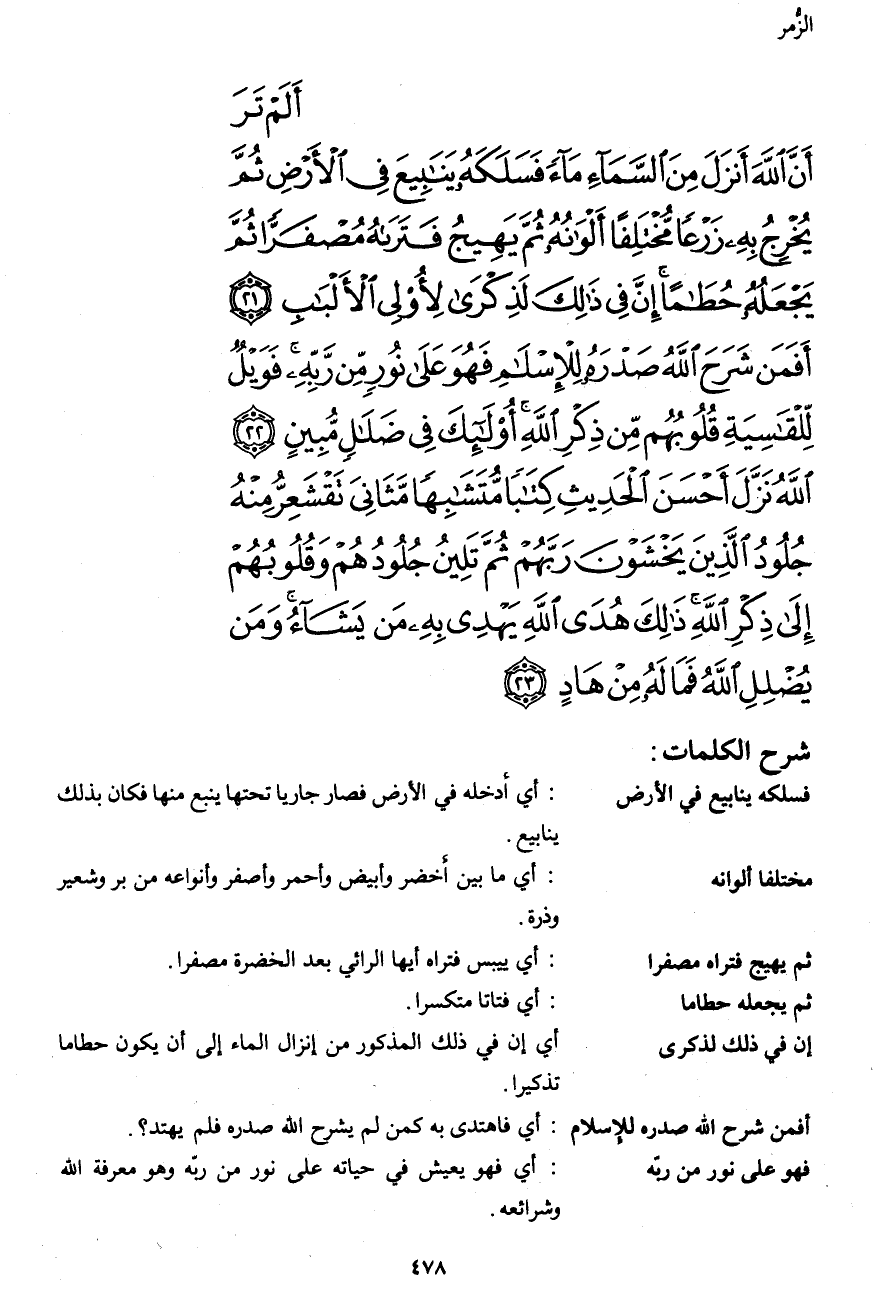 الزُّمر
أَلَمْ تَرَ
أَنَّ ٱللَّهَ أَنزَلَ مِنَ ٱلسَّمَآءِ مَآءً فَسَلَكَهُۥ يَنَٰبِيعَ فِى ٱلْأَرْضِ ثُمَّ
يُخْرِجُ بِهِۦ زَرْعًا مُّخْتَلِفًا أَلْوَٰنُهُۥ ثُمَّ يَهِيجُ فَتَرَىٰهُ مُصْفَرًّا ثُمَّ
يَجْعَلُهُۥ حُطَٰمًا ۚ إِنَّ فِى ذَٰلِكَ لَذِكْرَىٰ لِأُو۟لِى ٱلْأَلْبَٰبِ ٢١
أَفَمَن شَرَحَ ٱللَّهُ صَدْرَهُۥ لِلْإِسْلَٰمِ فَهُوَ عَلَىٰ نُورٍ مِّن رَّبِّهِۦ ۚ فَوَيْلٌ
لِّلْقَٰسِيَةِ قُلُوبُهُم مِّن ذِكْرِ ٱللَّهِ ۚ أُو۟لَٰٓئِكَ فِى ضَلَٰلٍ مُّبِينٍ ٢٢
ٱللَّهُ نَزَّلَ أَحْسَنَ ٱلْحَدِيثِ كِتَٰبًا مُّتَشَٰبِهًا مَّثَانِىَ تَقْشَعِرُّ مِنْهُ
جُلُودُ ٱلَّذِينَ يَخْشَوْنَ رَبَّهُمْ ثُمَّ تَلِينُ جُلُودُهُمْ وَقُلُوبُهُمْ
إِلَىٰ ذِكْرِ ٱللَّهِ ۚ ذَٰلِكَ هُدَى ٱللَّهِ يَهْدِى بِهِۦ مَن يَشَآءُ ۚ وَمَن
يُضْلِلِ ٱللَّهُ فَمَا لَهُۥ مِنْ هَادٍ ٢٣
شرح الكلمات :
فسلكه ينابيع في الأرض : أي أدخله في الأرض فصار جاريا تحتها ينبع منها فكان بذلك
ينابيع .
مختلفا ألوانه : أي ما بين أخضر وأبيض وأحمر وأصفر وأنواعه من بر وشعير
وذرة .
ثم يهيج فتراه مصفرا : أي ييبس فتراه أيها الرائي بعد الخضرة مصفرا .
ثم يجعله حطاما : أي فتاتا متكسرا .
إن في ذلك لذكرى أي إن في ذلك المذكور من إنزال الماء إلى أن يكون حطاما
تذكيرا .
أفمن شرح الله صدره للإسلام : أي فاهتدى به كمن لم يشرح الله صدره فلم يهتد؟ .
فهو على نور من ربّه : أي فهو يعيش في حياته على نور من ربّه وهو معرفة الله
وشرائعه .
٤٧٨